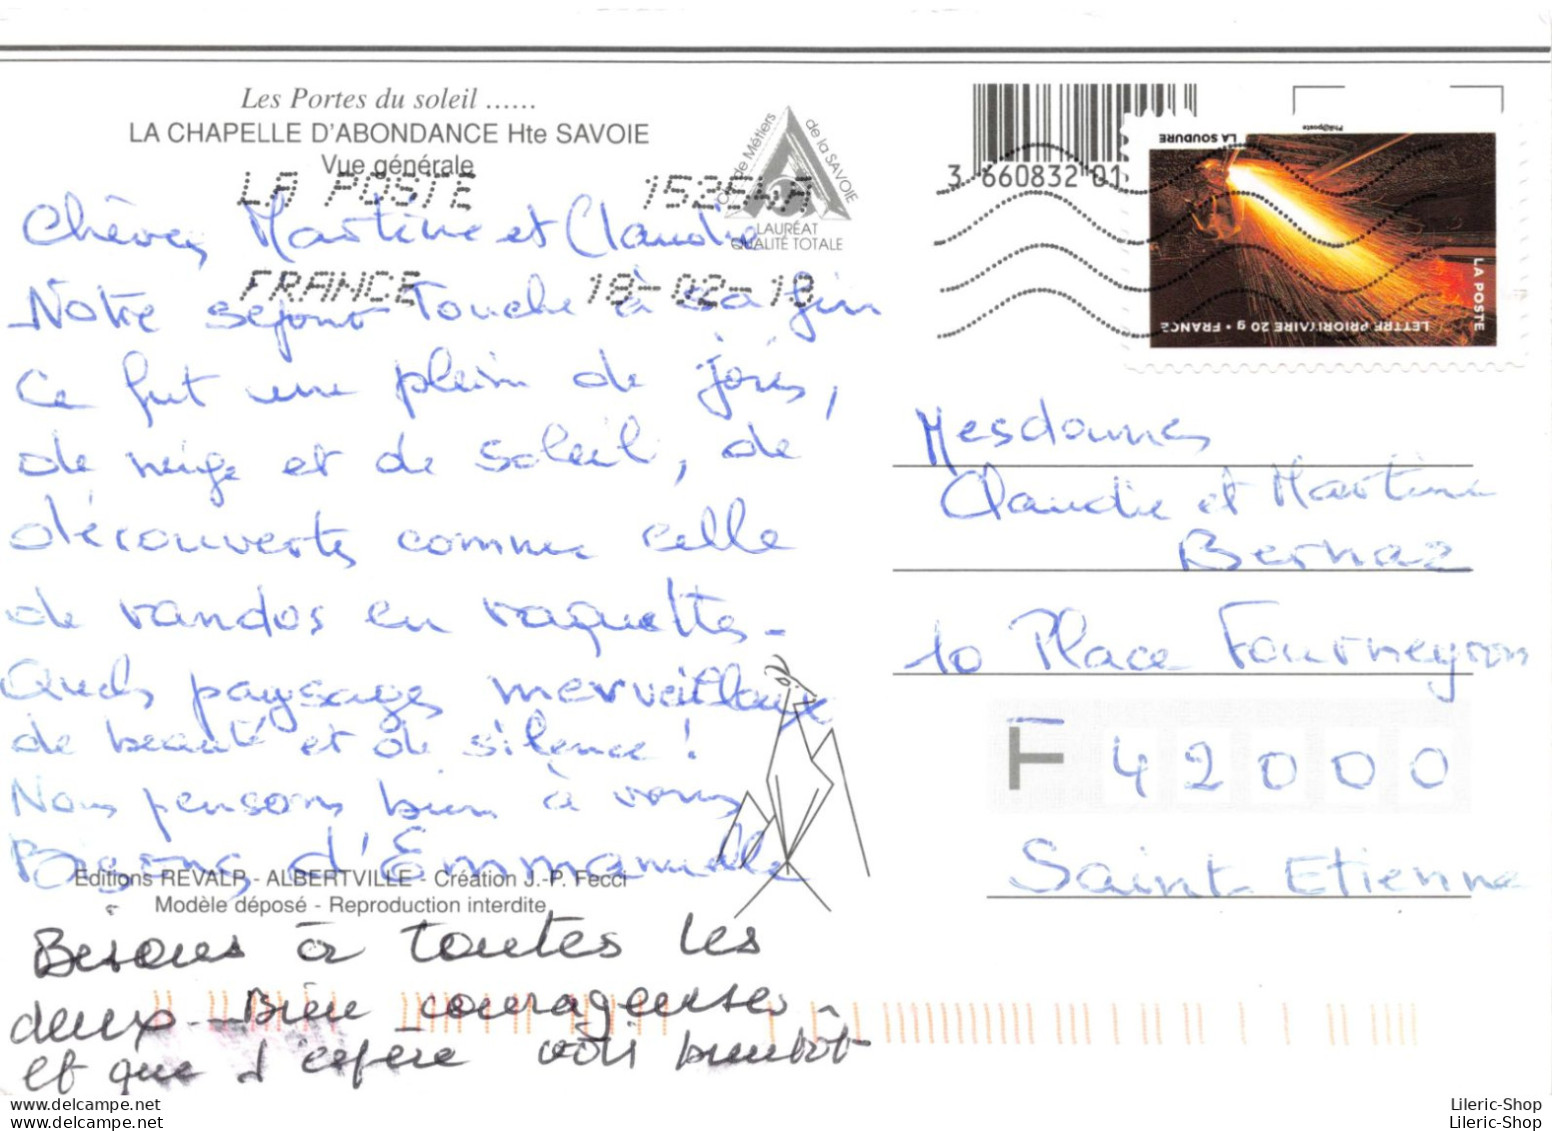 Les Portes du soleil ......
LA CHAPELLE D'ABONDANCE Hte SAVOIE
Vue générale
LA POSTE 15254A
FRANCE 18-02-13
de Métiers
de la SAVOIE
LAURÉAT
QUALITÉ TOTALE
Chères Martine et Claudie
Notre séjour touche à sa fin
Ce fut une plein de joies,
de neige et de soleil, de
découvertes comme celle
de randos en raquettes.
Quels paysages merveilleux
de beauté et de silence !
Nous pensons bien à vous
Bisous d'Emmanuelle
Editions REVALP - ALBERTVILLE - Création J.-P. Fecci
Modèle déposé - Reproduction interdite
Bisous à toutes les
deux. Bien courageuses
et que j'espère voir bientôt
3 660832 01
Phil@poste
LA SOUDURE
LA POSTE
LETTRE PRIORITAIRE 20 g • FRANCE
Mesdames
Claudie et Martine
Bernaz
10 Place Fourneyron
F 42000
Saint Etienne
Lileric-Shop
Lileric-Shop
www.delcampe.net
www.delcampe.net